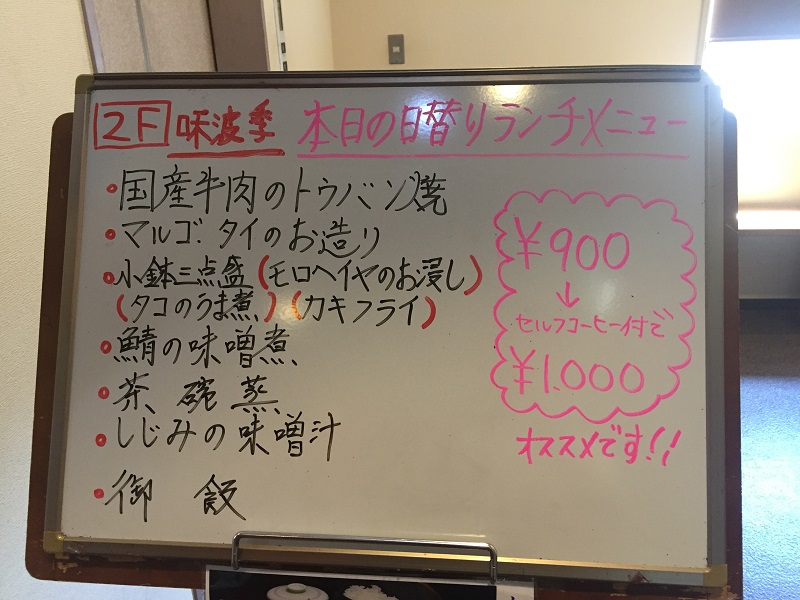 2F 味波季 本日の日替りランチメニュー
・国産牛肉のトウバン焼
・マルゴ.タイのお造り
・小鉢三点盛(モロヘイヤのお浸し)
(タコのうま煮)(カキフライ)
・鯖の味噌煮
・茶碗蒸
・しじみの味噌汁
・御飯
¥900
↓
セルフコーヒー付で
¥1.000
オススメです!!